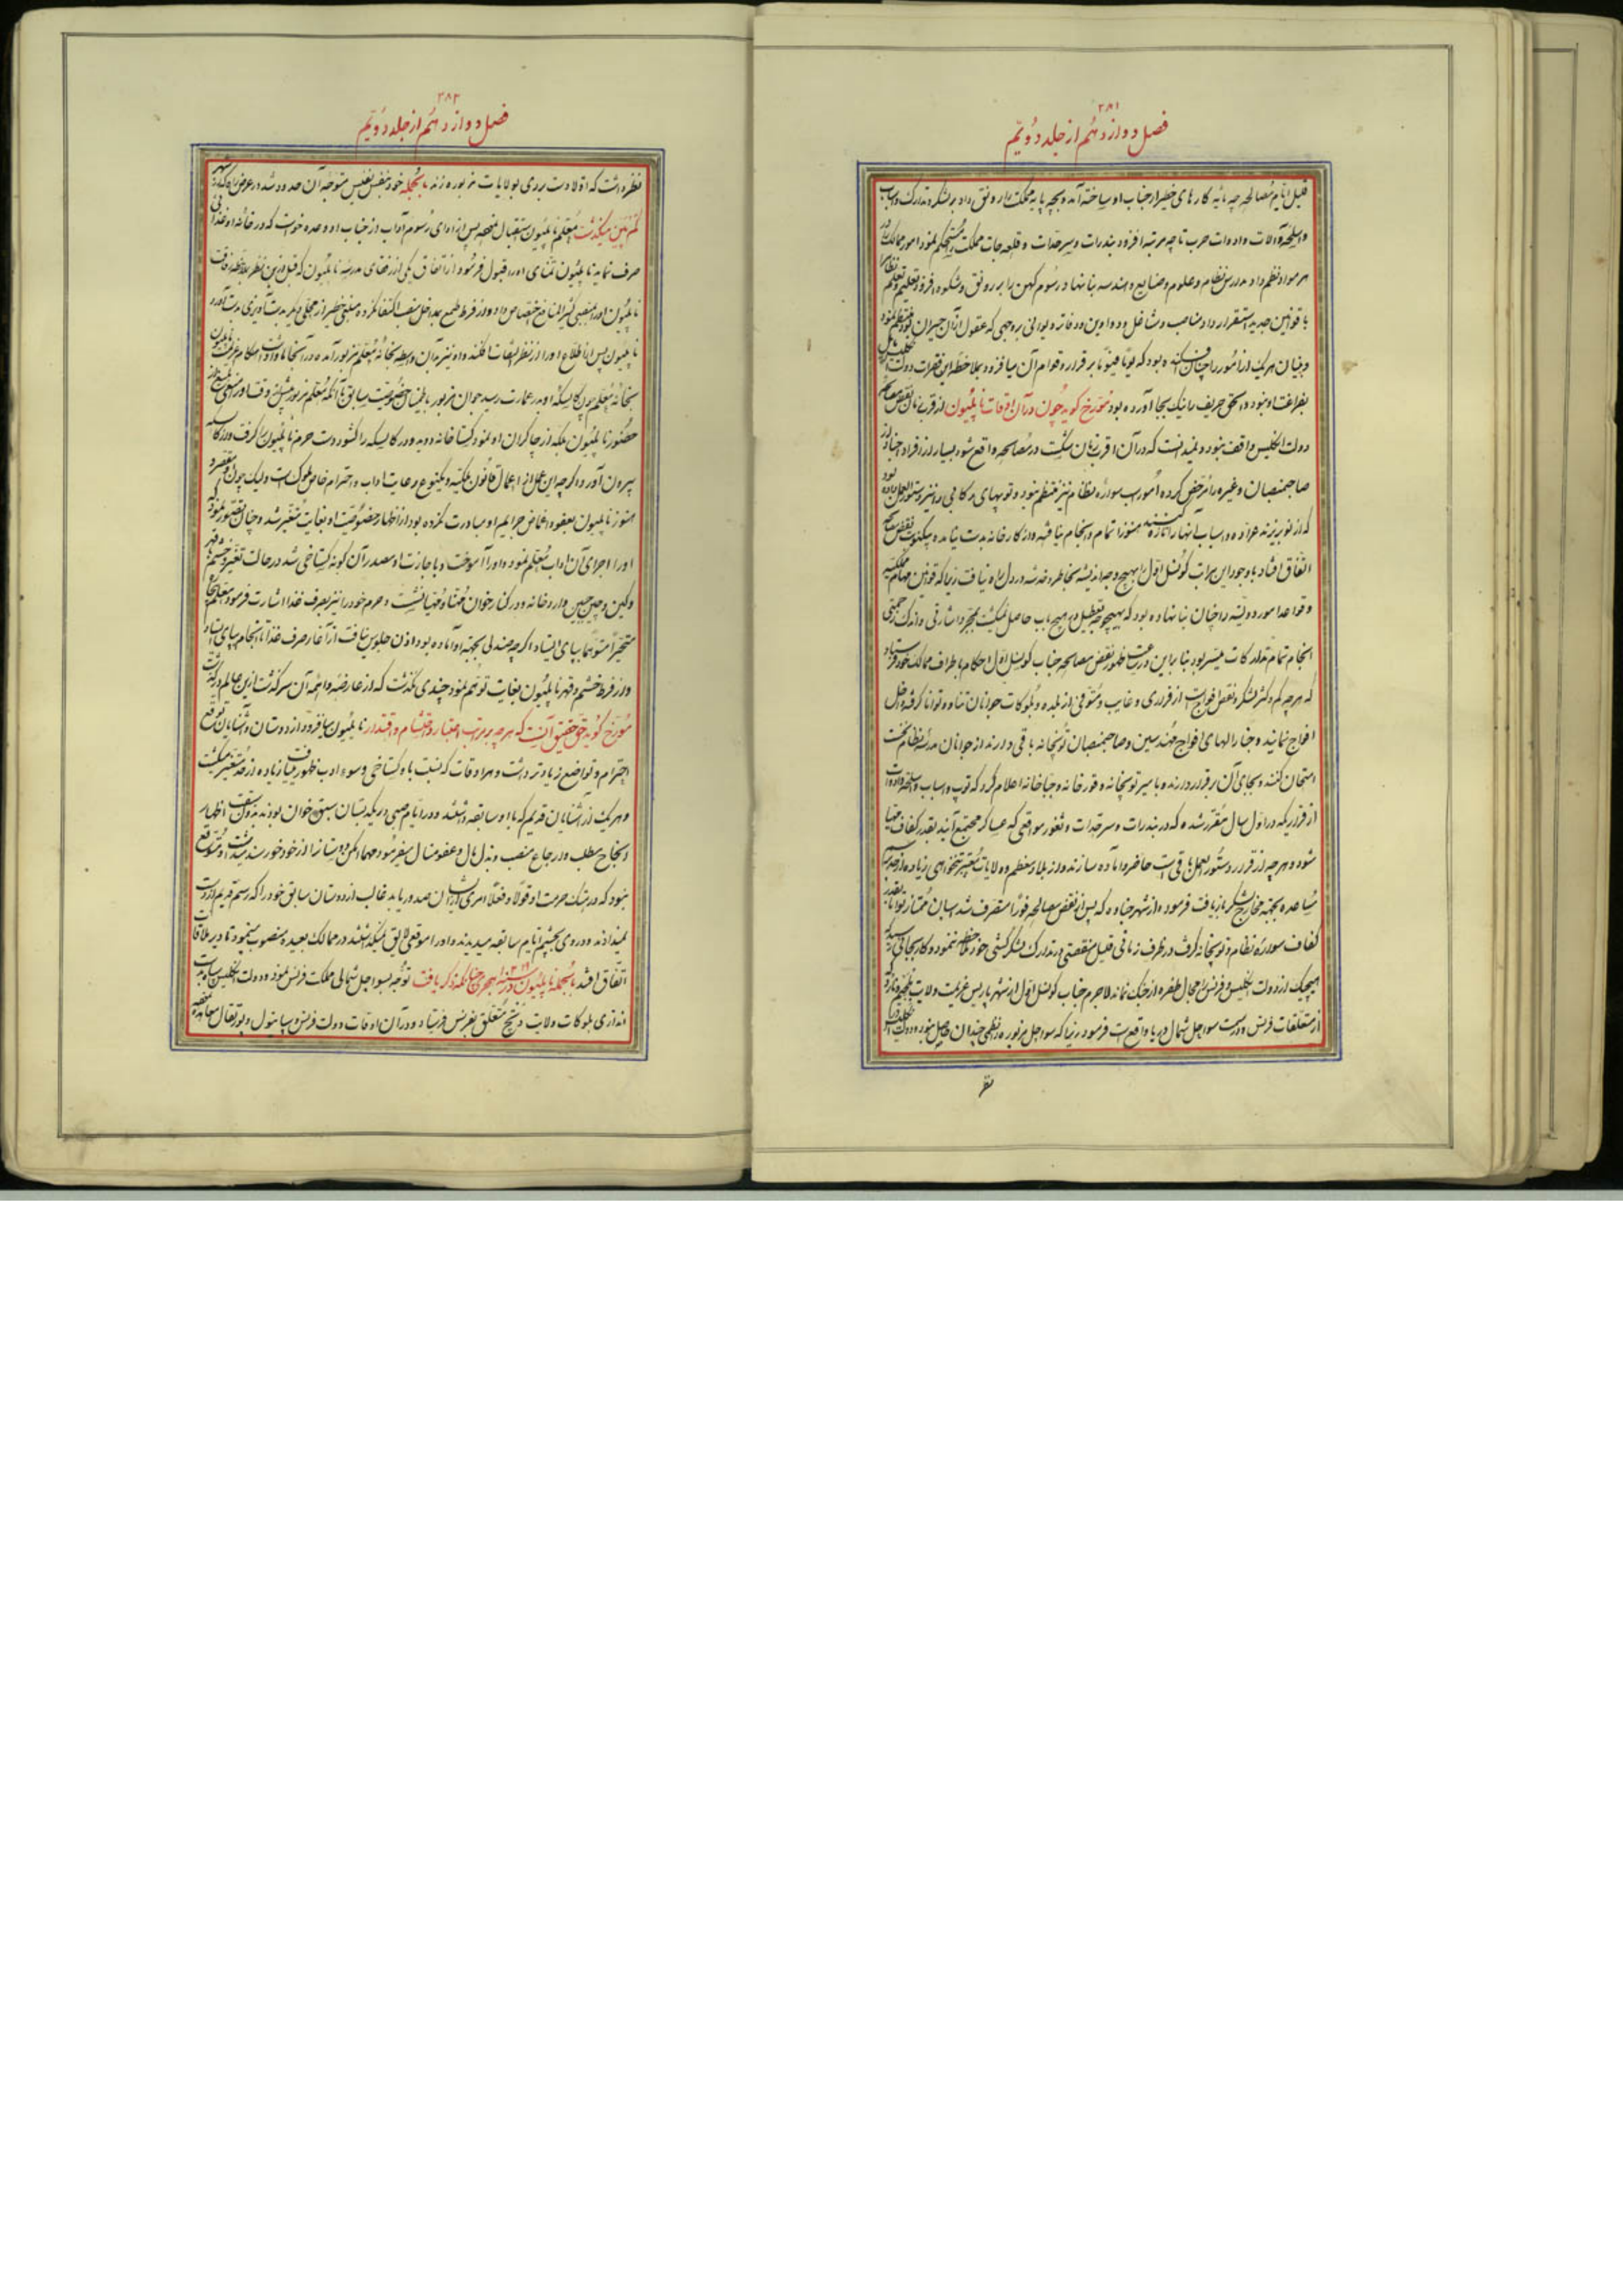 ٣٨١
فصل دوازدهم از جلد دویّم
قبل ایّام مصالحه چه مایه کارهای خطیر از جناب او ساخته آمد و بچه پایه مملکت را رونق داد بر لشکر و تدارک و اسباب
و اسلحه و آلات و ادوات حرب تا چه مرتبه افزود بندرات و سرحدّات و قلعه جات مملکت مستحکم نمود امور ممالک را در
هر مواد نظم داد مدرس نظام و علوم و صنایع و هندسه بنا نهاد رسوم کهن را بر رونق و شکوه افزود تعلیم و تعلم
با قوانین جدید استقرار داد مناصب و مشاغل و دواوین و دفاتر دیوانی بروجهی که عقول از آن حیران بود منتظم نمود
و بنیان هر یک از امور را چنان افکنده بود که یوماً فیوماً بر قرار و قوام آن میافزود بملاحظه این فقرات دولت انگلیس
بفراغت او نبود و الحق حریف را نیک بجا آورده بود مورّخ کوید چون در آن اوقات ناپلیون از قرب زمان نقض مصالحه
دولت انگلیس واقف نبود و نمیدانست که در آن اقرب زمان شکست در مصالحه واقع شود بسیار از افراد اجناد را از
صاحبمنصبان و غیره را مرخص کرده امور اسب سواره نظام نیز منتظم نبود و توپهای رکابی را نیز دستورالعمل داده بود
که از نو بریزند عرّاده و اسباب آنها را تازه کنند هنوز اتمام و انجام نیافته و از کارخانه بدست نیامده یکنوبت نقض مصالحه
اتفاق افتاد باوجود این مراتب کونسل اوّل را بهیچوجه اندیشه بخاطر و خدشه در دل راه نیافت زیرا که قوانین مهام ملکیّه
و قواعد امور دولتیّه را چنان بنا نهاده بود که بهیچوجه تعطیل در هیچ باب حاصل نمیکشت بمجرد اشارتی و اندک زحمتی
انجام تمام تدارکات میسّر بود بنابراین در ساعت ظهور نقض مصالحه جناب کونسل اوّل احکام باطراف ممالک خود فرستاد
که هرچه کم و کسر لشکر و نقص افواج است از فراری و غایب و متوفی از بلده و بلوکات جوانان تناور و توانا گرفته داخل
افواج نمایند و جنرالهای افواج مهندسین و صاحبمنصبان توپخانه باقی دارند از جوانان مدرسه نظام سخت
امتحان کنند و بجای آن برقرار دارند و بامیر توپخانه و قورخانه و جباخانه اعلام کرد که توپ و اسباب و اسلحه و ادوات
از قراریکه در اوّل سال مقرّر شده که در بندرات و سرحدّات و ثغور مواقعی که عساکر مجتمع آیند بقدر کفاف مهیّا
شود و هرچه از قرار دستورالعمل باقی است حاضر و آماده سازند و از بلاد معظم و ولایات معتبر تنخواهی زیاده از
مساعده بجهة مخارج لشکر بازیافت فرمود و از شهر هنّاوه که پس از نقض مصالحه فوراً متصرف شد اسبان ممتاز توانا بقدر
کفاف سواره نظام و توپخانه گرفت در ظرف زمانی قلیل منقصتی در تدارک لشکر کشی خود ملاحظه ننمود و کار بجائی رسید که
هیچیک از دولت انگلیس و فرنس را مجال طفره از جنگ نماند لاجرم جناب کونسل اوّل از شهر پاریس عزیمت ولایت بلجیم
از متعلقات فرنس و در سمت سواحل شمال دریا واقع است فرمود زیرا که سواحل مزبوره را نظمی چندان حاصل نبود و دولت انگلیس
نظر
٣٨٢
فصل دوازدهم از جلد دویّم
نظر داشت که اوّلا دست بردی بولایات مزبوره زند بالجمله خود بنفس نفیس متوجه آن حدود شد در عرض راه که از شهر
میگذشت معلم ناپلیون استقبال نموده پس از ادای رسوم آداب از جناب او وعده خواست که در خانه او غذائی
صرف نماید ناپلیون تمنّای او را قبول فرمود از اتفاق یکی از رفقای مدرسه ناپلیون که قبل از این نظر بملاحظه رفاقت
ناپلیون او را بمنصبی کثیر المنافع اختصاص داد و از فرط طمع بمداخل منصب اکتفا نکرده مبلغی خطیر از محلی دیگر بدست آویزی بدست آورد
ناپلیون پس از اطلاع او را از نظر التفات افکنده او نیز بدان واسطه بخانه معلم مزبور آمده در آنجا
بخانه معلم چون کالسکه او بدر عمارت رسید جوان مزبور باطمینان خصوصیّت سابق با آنکه معلم مزبور پیش
حضور ناپلیون بلکه از چاکران او نبود گستاخانه دویده در کالسکه را گشود دست حرم ناپلیون را گرفت و از کالسکه
بیرون آورد اگرچه این عمل از اعمال قانون ملکیّه و یکنوع رعایت اداب و احترام خاص ملوک است ولیک چون
هنوز ناپلیون بعفو و اغماض جرایم او مبادرت نکرده بود از اظهار خصوصیّت او بغایت متغیّر شد و چنان تصوّر نمود که
او را اجرای آن اداب معلم نمود و او را آموخت و باجازت او مصدر آن گونه گستاخی شد در حالت تغیّر و خشم و قهر
و کین و چین جبین وارد خانه و در کنار خوان مهنّا و مهیّا نشست و حرم خود را نیز بصرف غذا اشارت فرمود معلم بیچاره
متحیّراً متوهّماً بپای ایستاد اگرچه صندلی بجهة او آماده بود اذن جلوس نیافت از آغاز صرف غذا تا انجام بپای ایستاد
و از فرط خشم و قهر ناپلیون بغایت توهّم نمود چندی نگذشت که از عارضه واهمه آن سرگذشت از این عالم درگذشت
مورّخ گوید حق حقیق آنست که هرچه بر مراتب اعتبار و احتشام و اقتدار ناپلیون میافزود از دوستان و آشنایان توقع
احترام و تواضع زیادتر داشت و هر اوقات که نسبت باو گستاخی و سوء ادب ظهور مییافت زیاده از حدّ متغیّر میگشت
و هر یک از آشنایان قدیم که با او سابقه داشتند و در ایّام صبی در یک دبستان سبق خوان بودند بدون سبقت اظهار
انجاح مطلب و ارجاع منصب و بذل مال و عفو منال میفرمود مهما امکن دوستانرا از خود خورسند میداشت و متوقع
نبود که در هتک حرمت او قولاً و فعلاً امری از ایشان صدور یابد غالب از دوستان سابق خود را که رسم قدیم از دست
نمیدادند و در وی بچشم ایّام سابقه میدیدند و او را موقعی لایق نمیگذاشتند در ممالک بعیده منصوب مینمود تا دیر ملاقات
اتّفاق افتد بالجمله ناپلیون در سنه ١٢١٨ هجری چنانکه ذکر یافت توجّه بسواحل شمالی مملکت فرنس نمود و دولت انگلیس
اندازی بلوکات ولایت دنیج متعلق بفرنس فرستاد و در آن اوقات دولت فرنس و سپانیول و پورتقال معاهده